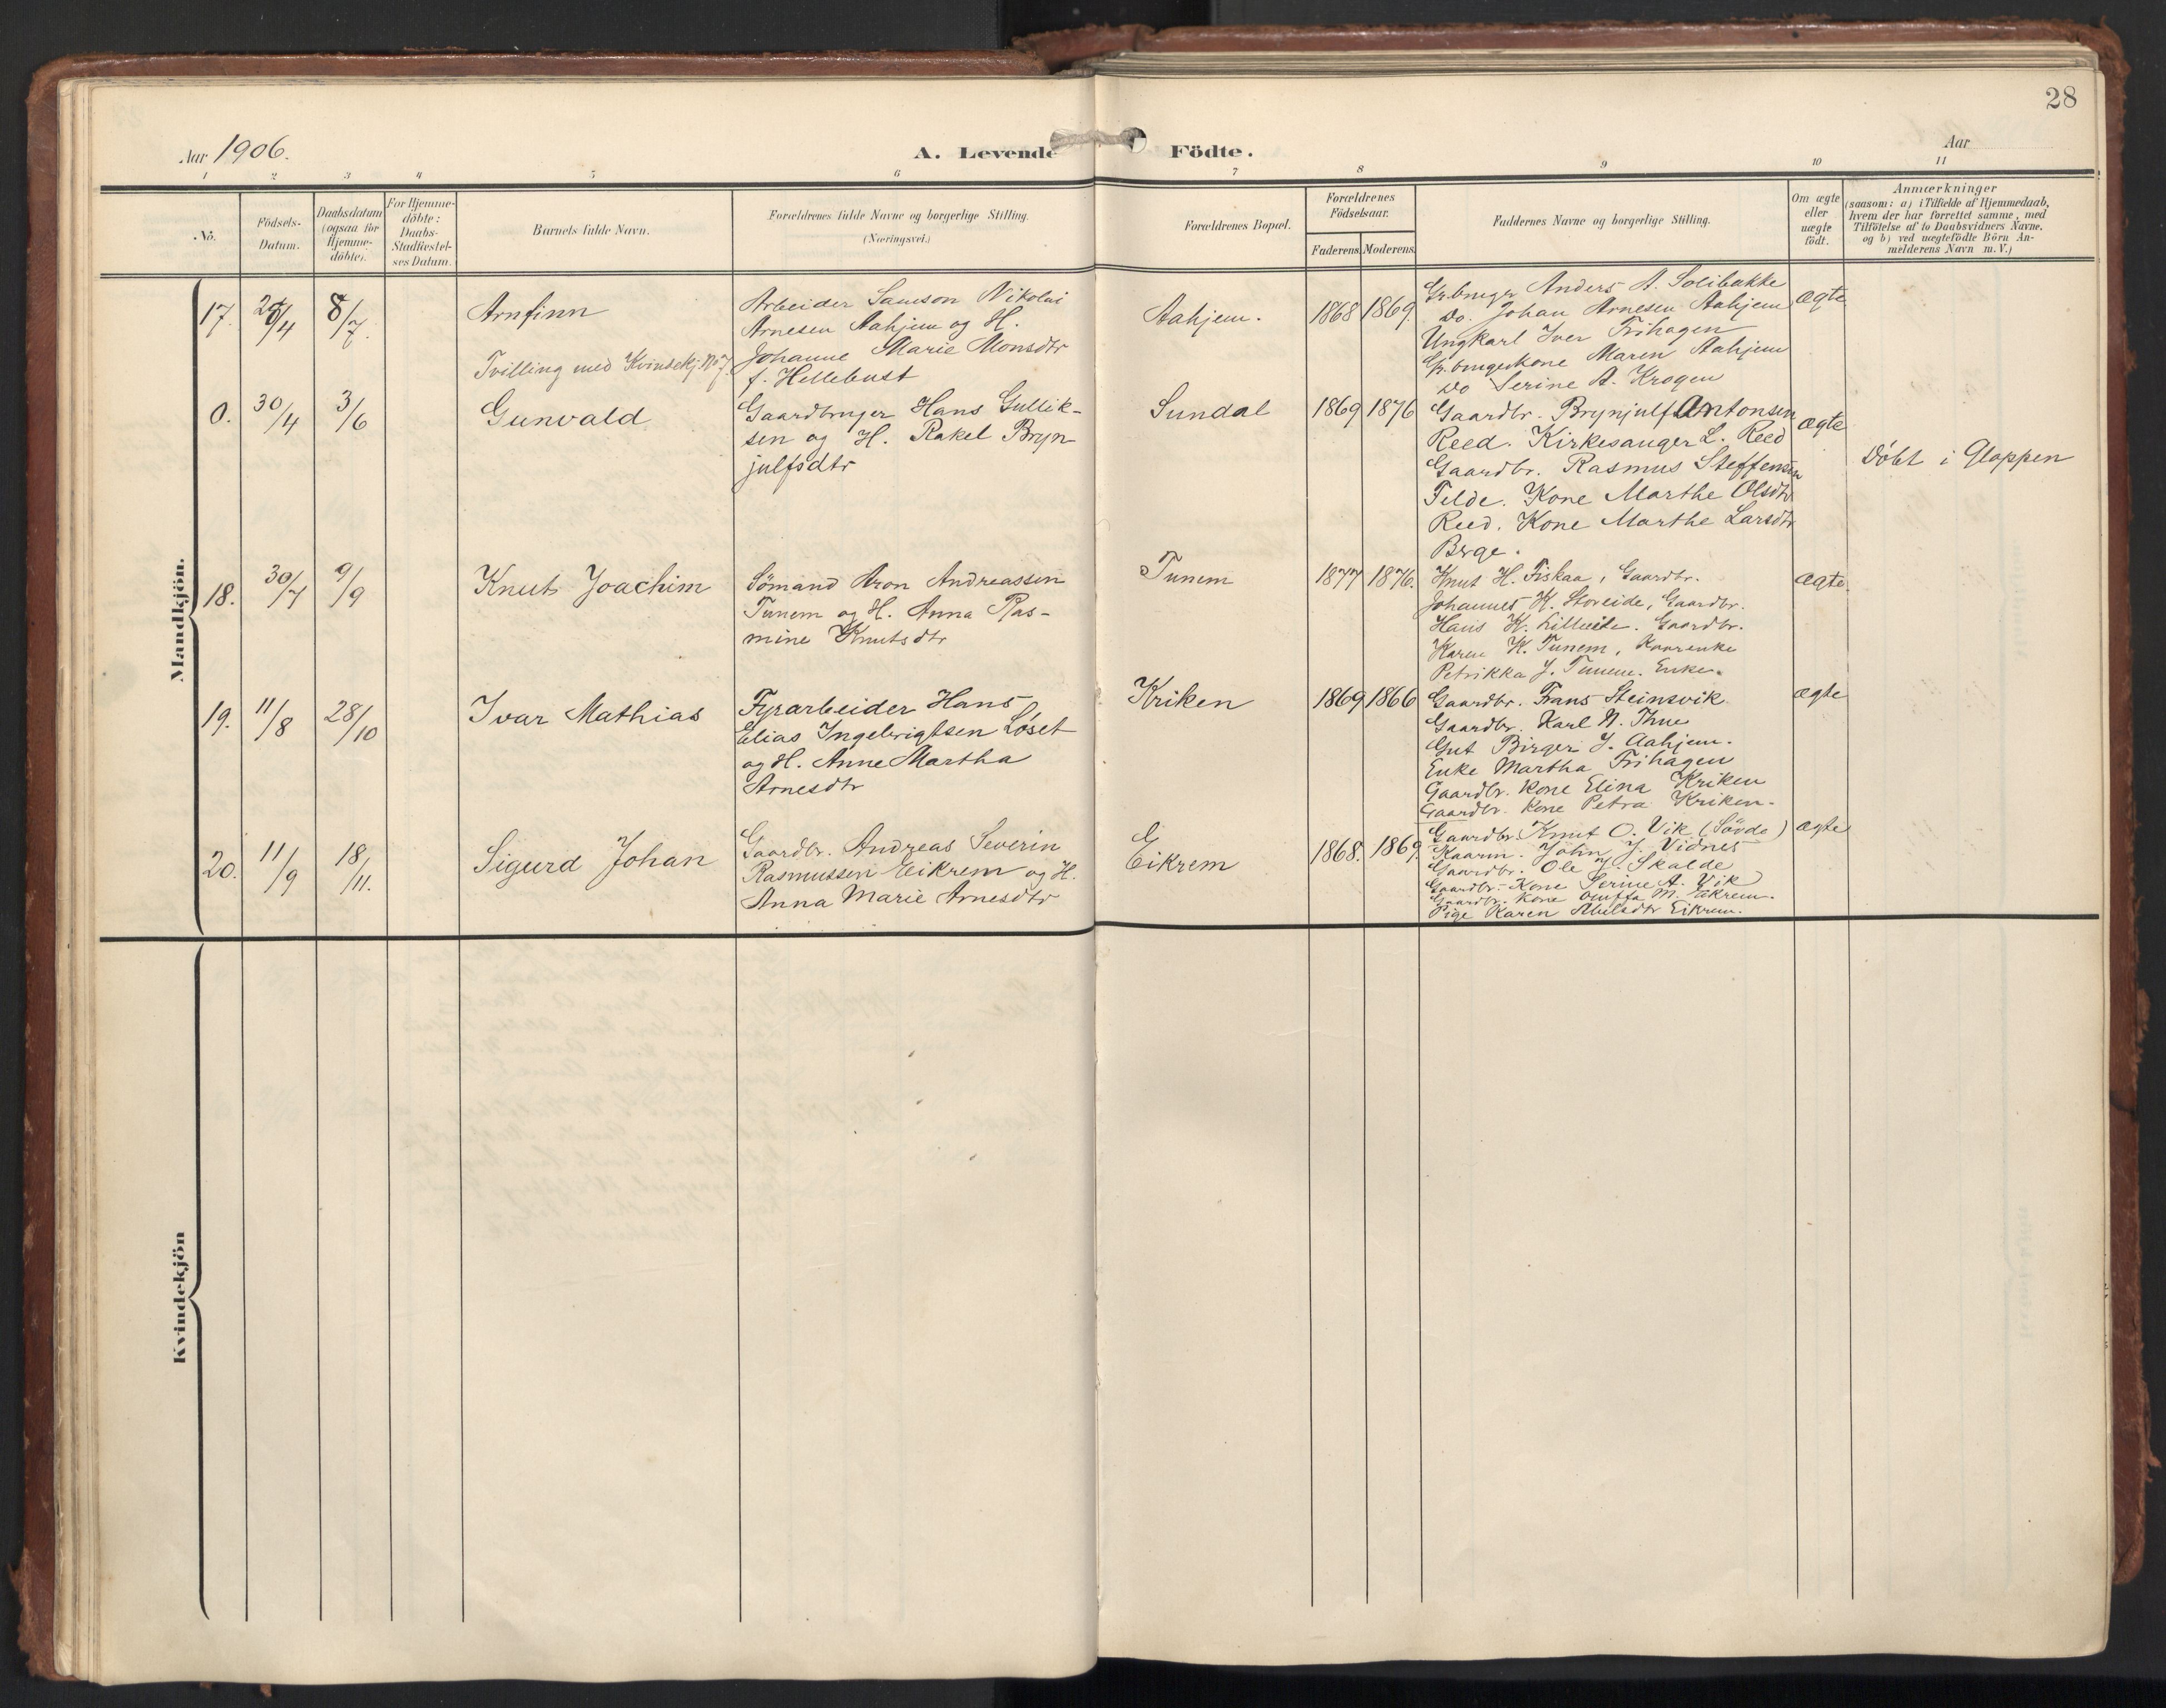 28
Aar 1906.
A. Levende Födte.
Aar
1 2 3 4 5 6 7 8 9 10 11
No.
Födsels-
Datum.
Daabsdatum
(ogsaa for
Hjemme-
döbte).
For Hjemme-
döbte:
Daabs-
Stadfæstel-
ses Datum.
Barnets fulde Navn.
Forældrenes fulde Navne og borgerlige Stilling.
(Næringsvei.)
Forældrenes Bopæl.
Forældrenes
Födselsaar.
Faderens Moderens
Faddernes Navne og borgerlige Stilling.
Om ægte
eller
uægte
födt.
Anmærkninger
(saasom: a) i Tilfælde af Hjemmedaab,
hvem der har forrettet samme, med
Tilföielse af to Daabsvidners Navne.
og b) ved uægtefödte Börn An-
melderens Navn m. V.)
Mandkjön.
17. /4 8/7.
Arnfinn
Tvilling med Kvindekj. No 7.
Arbeider Samson Nikolai
Arnesen Aahjem og H.
Johanne Marie Monsdtr
f. Hellebust
Aahjem. 1868 1869.
Gr.bruger Anders A. Solibakke
Do. Johan Arnesen Aahjem
Ungkarl Iver Frihagen
Gr.brugerkone Maren Aahjem
Do Serine A. Krogen
ægte
0. 30/4 3/6
Gunvald
Gaardbruger Hans Gullik-
sen og H. Rakel Bryn-
julfsdtr
Sundal 1869 1876
Gaardbr. Brynjulf Antonsen
Reed. Kirkesanger L. Reed
Gaardbr. Rasmus Steffensen
Felde. Kone Marthe Olsdtr
Reed. Kone Marthe Larsdtr
Berge.
ægte
Döbt i Gloppen
18. 30/7 9/9
Knut Joachim
Sömand Aron Andreassen
Tunem og H. Anna Ras-
mine Knutsdtr
Tunem 1877 1876.
Knut H. Fiskaa, Gaardbr.
Johannes K. Storeide, Gaardbr.
Hans K. Lilleeide. Gaardbr.
Karen K. Tunem, Kaarenke
Petrikka J. Tunem. Enke.
ægte.
19. 11/8 28/10
Ivar Mathias
Fyrarbeider Hans
Elias Ingebrigtsen Löset
og H. Anne Martha
Arnesdtr
Kriken 1869 1866
Gaardbr. Frans Steinsvik
Gaardbr. Karl N. Thue
Gut Birger J. Aahjem.
Enke Martha Frihagen
Gaardbr. kone Elina Kriken
Gaardbr. kone Petra Kriken.
ægte
20. 11/9 18/11.
Sigurd Johan
Gaardbr. Andreas Severin
Rasmussen Eikrem og H.
Anna Marie Arnesdtr
Eikrem 1868. 1869.
Gaardbr. Knut O. Vik (Sövde)
Kaarm. John J. Vidnes
Gaardbr. Ole J. Skalde
Gaardbr.-Kone Serine A. Vik
Gaardbr. Kone M. Eikrem.
Pige Karen Abelsdtr Eikrem.
ægte
Kvindekjön